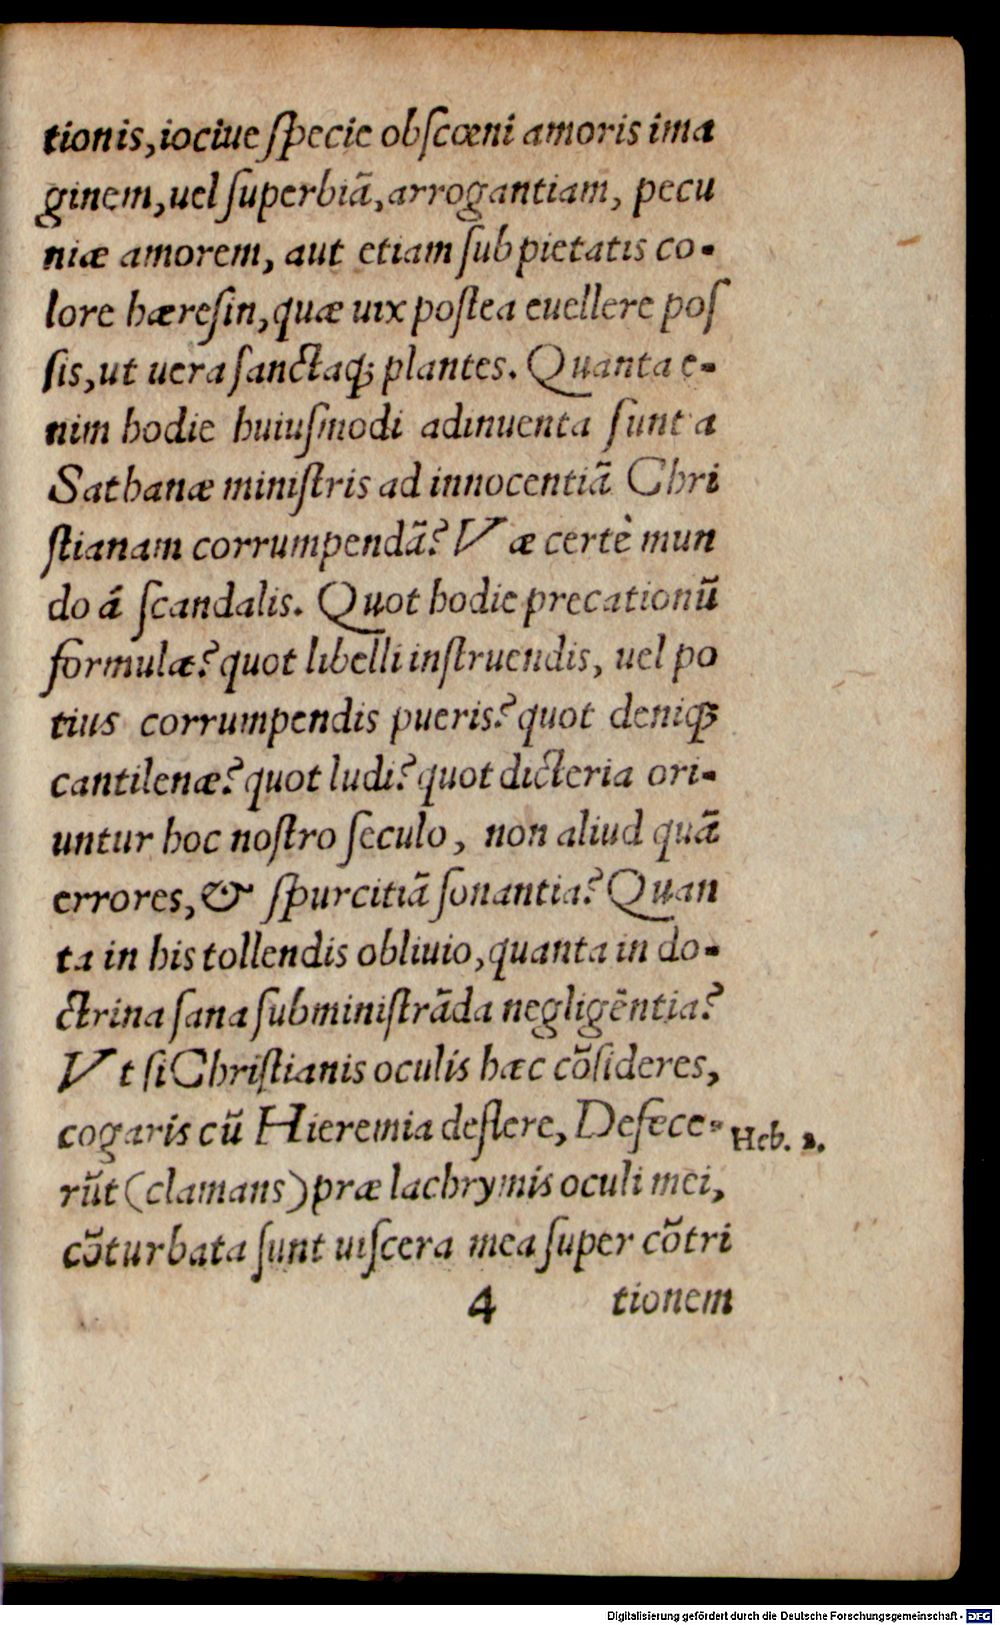 tionis, iociue ſpecie obſcœni amoris ima
ginem, uel ſuperbiã, arrogantiam, pecu
niæ amorem, aut etiam ſub pietatis co-
lore hæreſin, quæ uix poſtea euellere poſ
ſis, ut uera ſanctaq; plantes. Quanta e-
nim hodie huiuſmodi adinuenta ſunt a
Sathanæ miniſtris ad innocentiã Chri
ſtianam corrumpendã? Væ certè mun
do á ſcandalis. Quot hodie precationũ
formulæ? quot libelli inſtruendis, uel po
tius corrumpendis pueris? quot deniq;
cantilenæ? quot ludi? quot dicteria ori-
untur hoc noſtro ſeculo, non aliud quã
errores, & ſpurcitiã ſonantia? Quan
ta in his tollendis obliuio, quanta in do-
ctrina ſana ſubminiſtrãda negligẽntia?
Vt ſi Chriſtianis oculis hæc cõſideres,
cogaris cũ Hieremia deflere, Defece-
rũt (clamans) præ lachrymis oculi mei,
cõturbata ſunt uiſcera mea ſuper cõtri
Heb. 2.
4 tionem
Digitalisierung gefördert durch die Deutsche Forschungsgemeinschaft - DFG